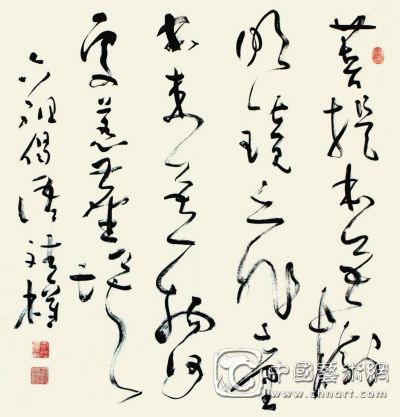 菩提本無樹
明鏡亦非臺
本來無一物何
處惹塵埃
六祖偈語
中國藝術網
www.cnnart.com